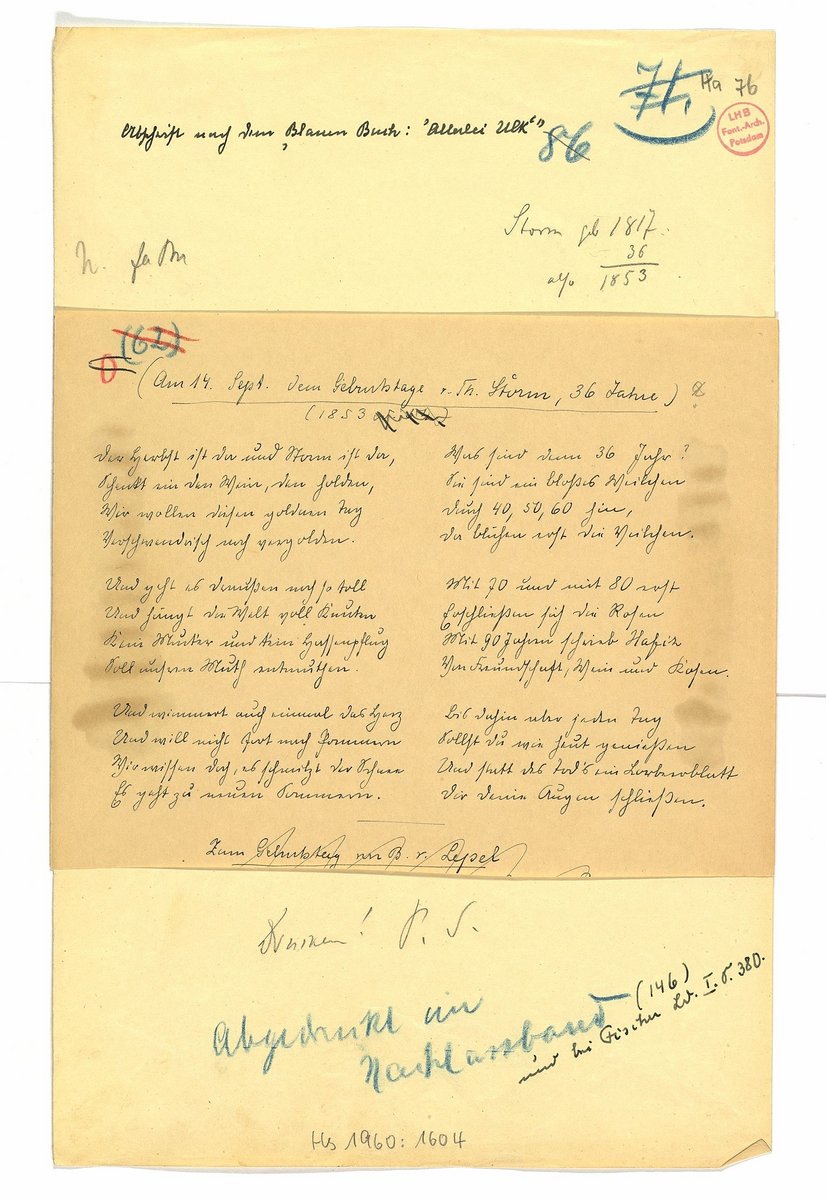 71. Ha 76
LHB
Font.-Arch.
Potsdam
Abschrift nach dem "Blauen Buch: 'Allerlei Ulk'"
86
Storm geb 1817.
36
also 1853.
(62)
(Am 14. Sept. dem Geburtstage v. Th. Storm, 36 Jahre)
(1853
Der Herbst ist da und Storm ist da,
Schenkt ein den Wein, den holden,
Wir wollen diesen goldnen Tag
Verschwendrisch noch vergolden.
Und geht es draußen noch so toll
Und hängt die Welt voll Knuten
Kein Mucker und kein Hassenpflug
Soll unsren Muth entmuthen.
Und wimmert auch einmal das Herz
Und will nicht fort nach Pommern
Wir wissen doch, es schmilzt der Schnee
Es geht zu neuen Sommern.
Was sind denn 36 Jahr?
Sie sind ein bloßes Weilchen
Durch 40, 50, 60 hin,
Da blühen erst die Veilchen.
Mit 70 und mit 80 erst
Erschließen sich die Rosen
Mit 90 Jahren schrieb Hafiz
Von Freundschaft, Wein und Kosen.
Bis dahin aber jeden Tag
Sollst du wie heut genießen
Und statt des Tod's ein Lorbeerblatt
Dir deine Augen schließen.
Zum Geburtstag von B. v. Lepel
Drucken! P. S.
Abgedruckt im
Nachlassband (146)
und bei Fischer Bd. I. S. 380.
Hs 1960: 1604